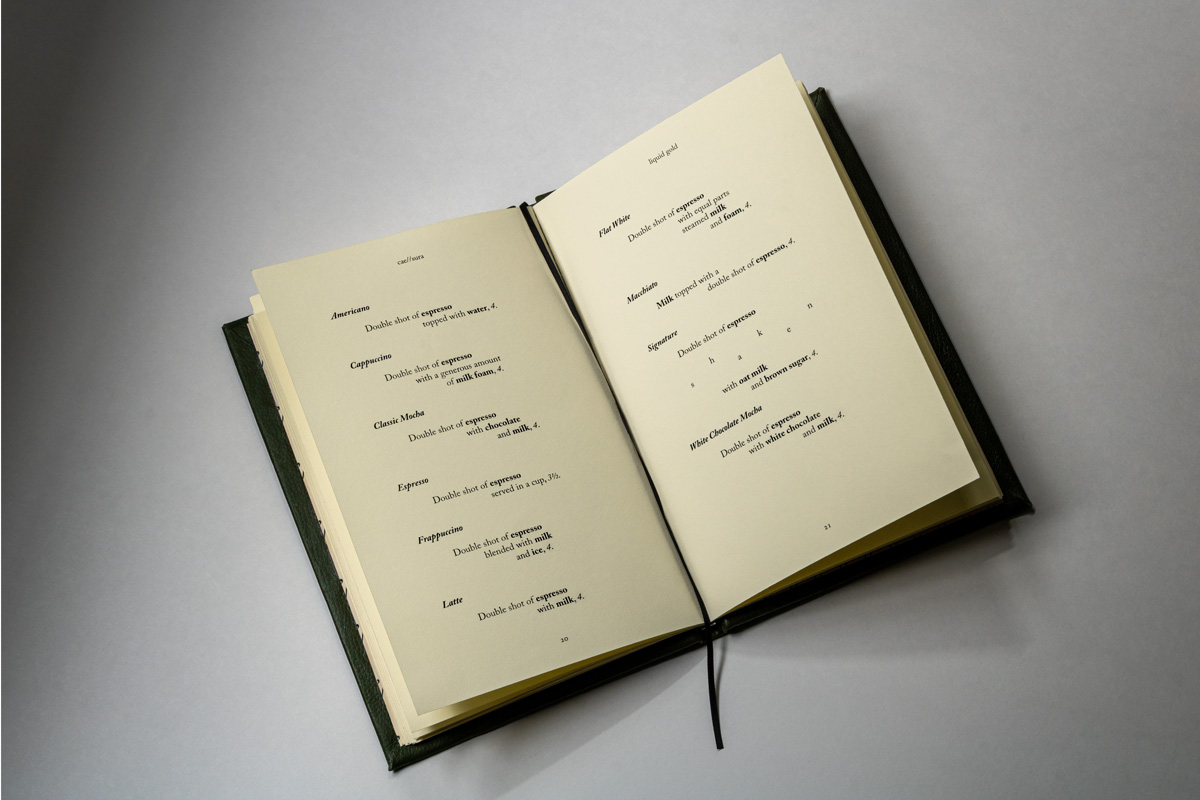 cae//sura
Americano
Double shot of espresso
topped with water, 4.
Cappuccino
Double shot of espresso
with a generous amount
of milk foam, 4.
Classic Mocha
Double shot of espresso
with chocolate
and milk, 4.
Espresso
Double shot of espresso
served in a cup, 3½.
Frappuccino
Double shot of espresso
blended with milk
and ice, 4.
Latte
Double shot of espresso
with milk, 4.
20
liquid gold
Flat White
Double shot of espresso
with equal parts
steamed milk
and foam, 4.
Macchiato
Milk topped with a
double shot of espresso, 4.
Signature
Double shot of espresso
s h a k e n
with oat milk
and brown sugar, 4.
White Chocolate Mocha
Double shot of espresso
with white chocolate
and milk, 4.
21